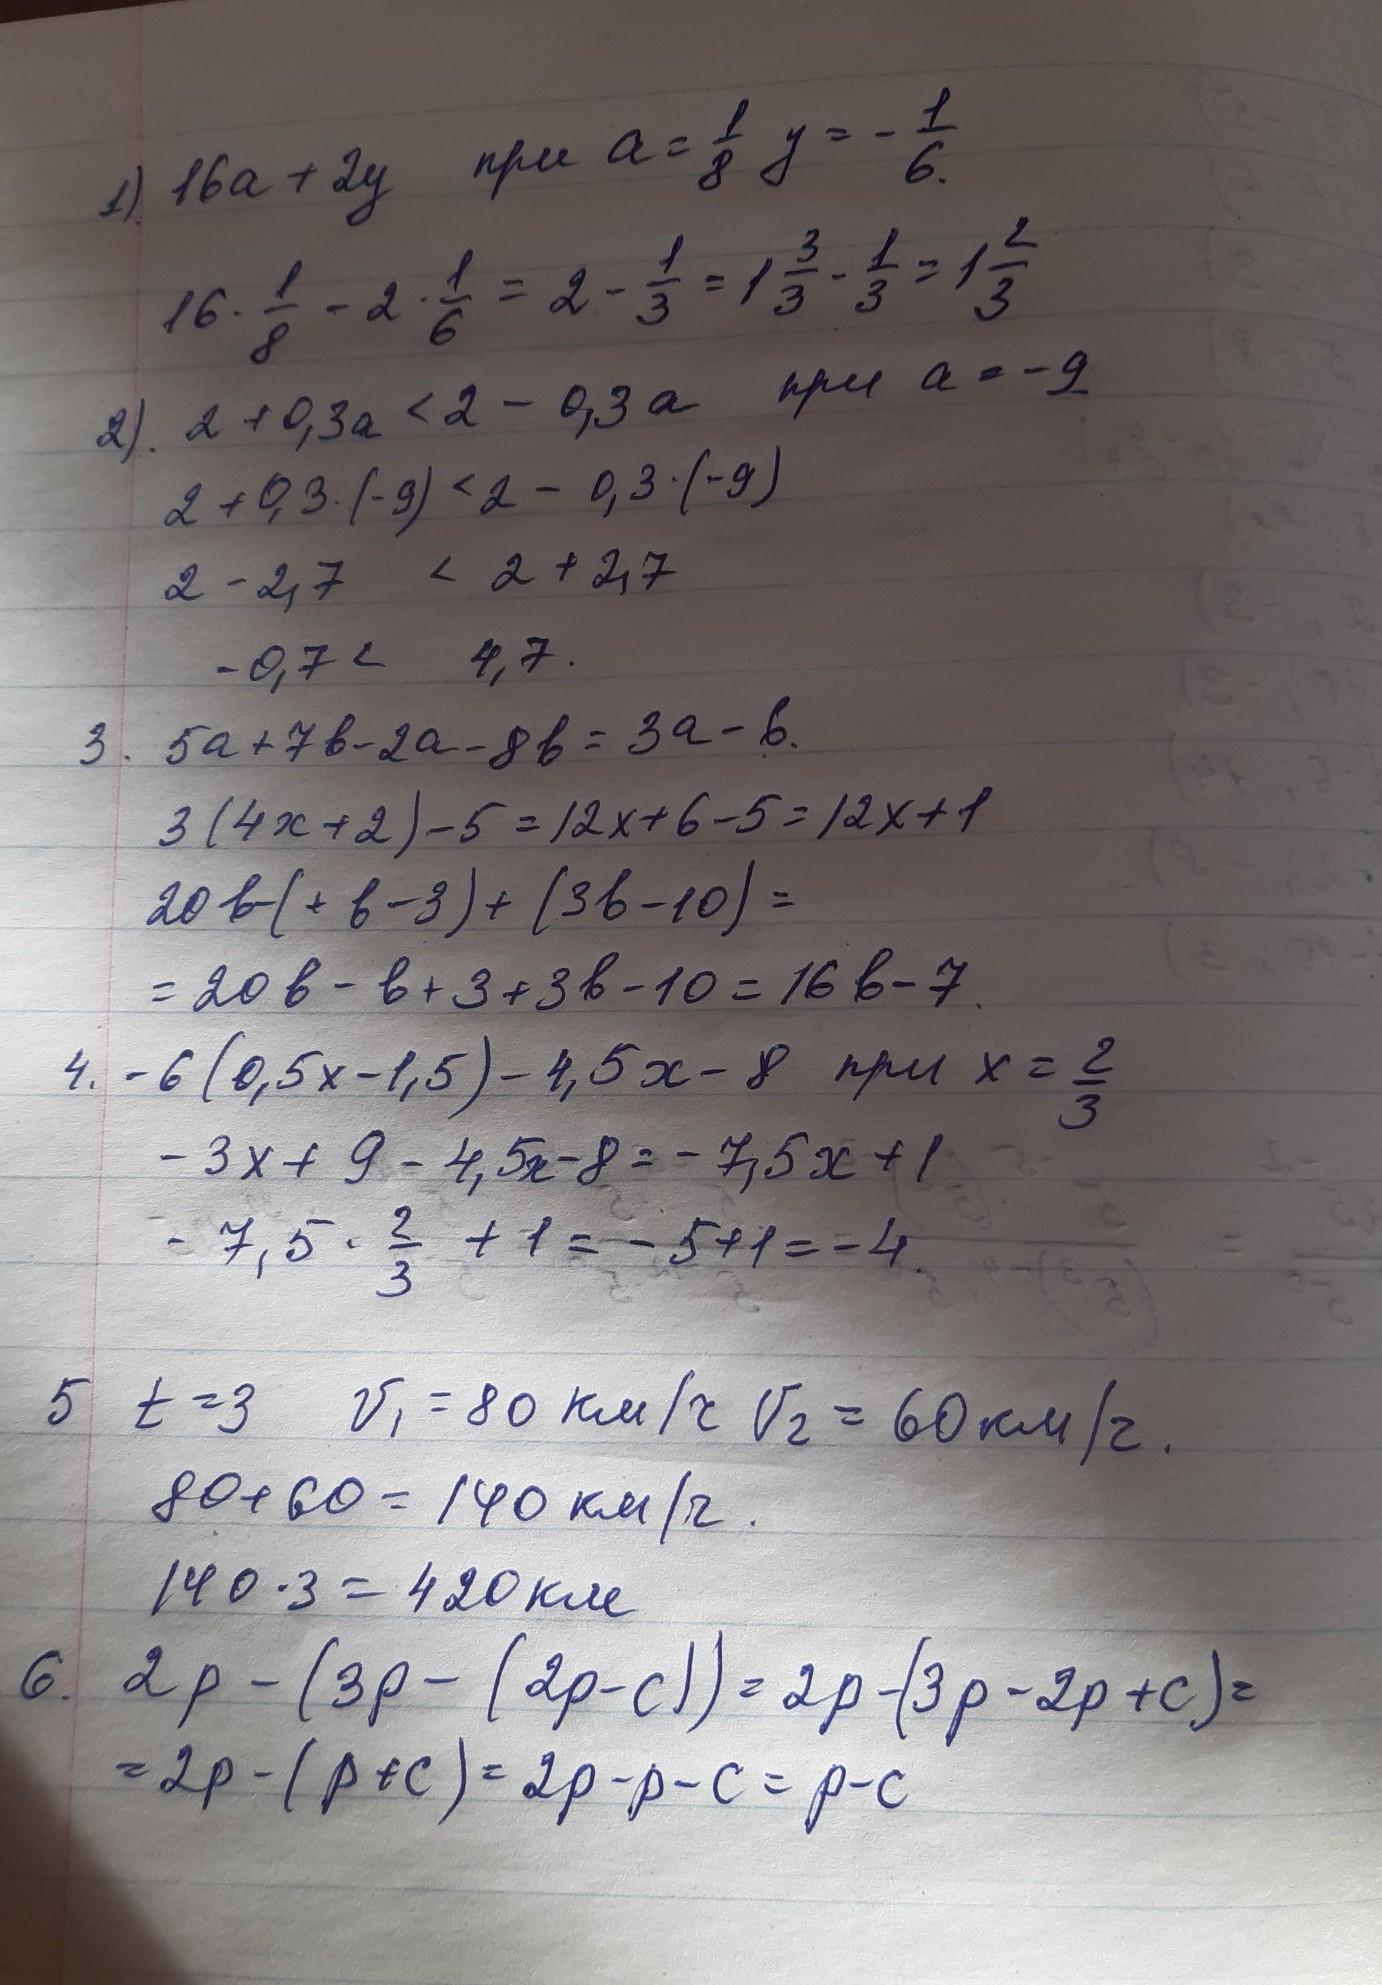 1) 16a + 2y при a = 1/8 y = - 1/6.
16 · 1/8 - 2 · 1/6 = 2 - 1/3 = 1 3/3 - 1/3 = 1 2/3
2). 2 + 0,3a < 2 - 0,3a при a = -9
2 + 0,3 · (-9) < 2 - 0,3 · (-9)
2 - 2,7 < 2 + 2,7
-0,7 < 4,7.
3. 5a + 7b - 2a - 8b = 3a - b.
3(4x + 2) - 5 = 12x + 6 - 5 = 12x + 1
20b - (+ b - 3) + (3b - 10) =
= 20b - b + 3 + 3b - 10 = 16b - 7.
4. -6(0,5x - 1,5) - 4,5x - 8 при x = 2/3
-3x + 9 - 4,5x - 8 = -7,5x + 1
-7,5 · 2/3 + 1 = -5 + 1 = -4.
5 t = 3 V₁ = 80 км/ч V₂ = 60 км/ч.
80 + 60 = 140 км/ч.
140 · 3 = 420 км
6. 2p - (3p - (2p - c)) = 2p - (3p - 2p + c) =
= 2p - (p + c) = 2p - p - c = p - c